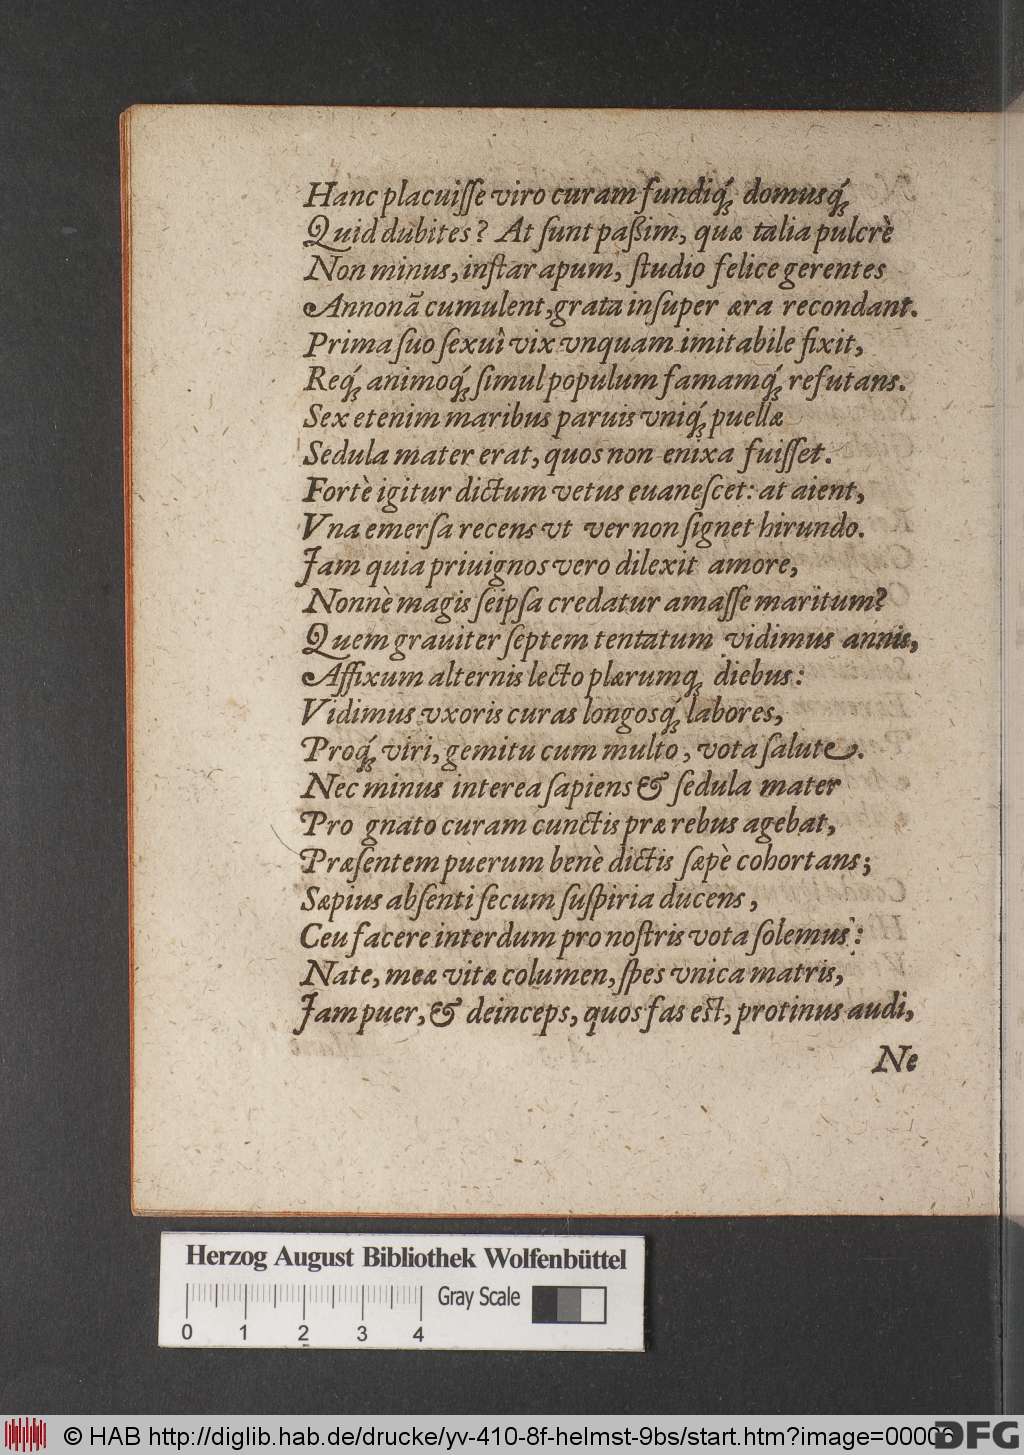 Hanc placuiſſe viro curam fundiq́ꝫ domusq́ꝫ
Quid dubites? At ſunt paßim, quæ talia pulcrè
Non minus, inſtar apum, ſtudio felice gerentes
Annonā cumulent, grata inſuper æra recondant.
Prima ſuo ſexuî vix vnquam imitabile fixit,
Req́ꝫ animoq́ꝫ ſimul populum famamq́ꝫ refutans.
Sex etenim maribus paruis vniq́ꝫ puellæ
Sedula mater erat, quos non enixa fuiſſet.
Fortè igitur dictum vetus euaneſcet: at aient,
Vna emerſa recens vt ver non ſignet hirundo.
Jam quia priuignos vero dilexit amore,
Nonnè magis ſeipſa credatur amaſſe maritum?
Quem grauiter ſeptem tentatum vidimus annis,
Affixum alternis lecto plærumqꝫ diebus:
Vidimus vxoris curas longosq́ꝫ labores,
Proq́ꝫ viri, gemitu cum multo, vota ſalute.
Nec minus interea ſapiens & ſedula mater
Pro gnato curam cunctis præ rebus agebat,
Præſentem puerum benè dictis ſæpè cohortans;
Sæpius abſenti ſecum ſuſpiria ducens,
Ceu facere interdum pro noſtris vota ſolemus:
Nate, meæ vitæ columen, ſpes vnica matris,
Jam puer, & deinceps, quos fas eſt, protinus audi,
Ne
Herzog August Bibliothek Wolfenbüttel
Gray Scale
0 1 2 3 4
© HAB http://diglib.hab.de/drucke/yv-410-8f-helmst-9bs/start.htm?image=00006
DFG